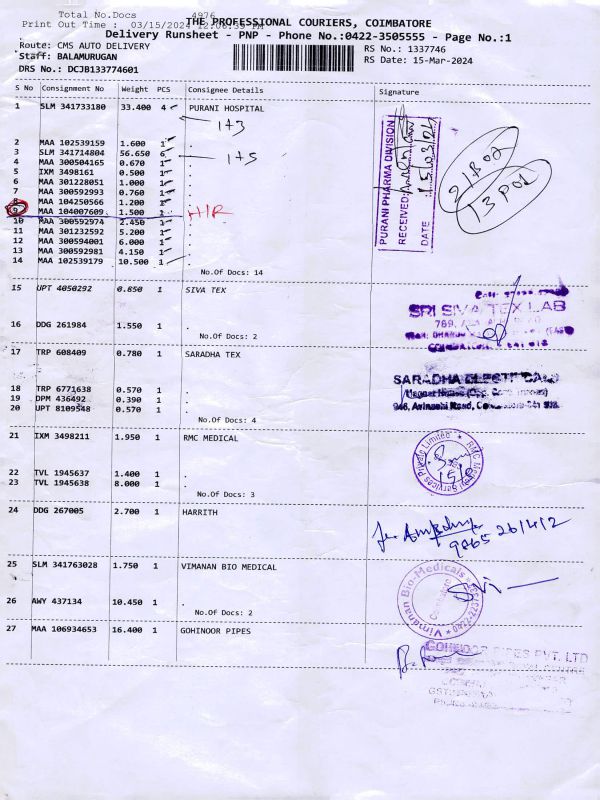 Total No.Docs : 4976
Print Out Time : 03/15/2024 12:06:39 PM
THE PROFESSIONAL COURIERS, COIMBATORE
Delivery Runsheet - PNP - Phone No.:0422-3505555 - Page No.:1
Route: CMS AUTO DELIVERY
RS No.: 1337746
Staff: BALAMURUGAN
RS Date: 15-Mar-2024
DRS No.: DCJB133774601
S No Consignment No Weight PCS Consignee Details Signature
1 SLM 341733180 33.400 4 PURANI HOSPITAL
1+3
2 MAA 102539159 1.600 1 .
3 SLM 341714804 56.650 6 . 1+5
4 MAA 300504165 0.670 1 .
5 IXM 3498161 0.500 1 .
6 MAA 301228051 1.000 1 .
7 MAA 300592993 0.760 1 .
8 MAA 104250566 1.200 1 .
9 MAA 104007609 1.500 1 . H/R
10 MAA 300592974 2.450 1 .
11 MAA 301232592 5.200 1 .
12 MAA 300594001 6.000 1 .
13 MAA 300592981 4.150 1 .
14 MAA 102539179 10.500 1 .
No.Of Docs: 14
PURANI PHARMA DIVISION
RECEIVED
DATE : 15/03/24
21 BOX
13 POD
15 UPT 4050292 0.850 1 SIVA TEX
SRI SIVA TEX LAB
16 DDG 261984 1.550 1 .
No.Of Docs: 2
17 TRP 608409 0.780 1 SARADHA TEX
SARADHA
18 TRP 6771638 0.570 1 .
19 DPM 436492 0.390 1 .
20 UPT 8109548 0.570 1 .
946, Avinashi Road,
No.Of Docs: 4
21 IXM 3498211 1.950 1 RMC MEDICAL
22 TVL 1945637 1.400 1 .
23 TVL 1945638 8.000 1 .
No.Of Docs: 3
24 DDG 267005 2.700 1 HARRITH
9865 261412
25 SLM 341763028 1.750 1 VIMANAN BIO MEDICAL
Vimanan Bio-Medicals
26 AWY 437134 10.450 1 .
No.Of Docs: 2
27 MAA 106934653 16.400 1 GOHINOOR PIPES
PIPES PVT. LTD